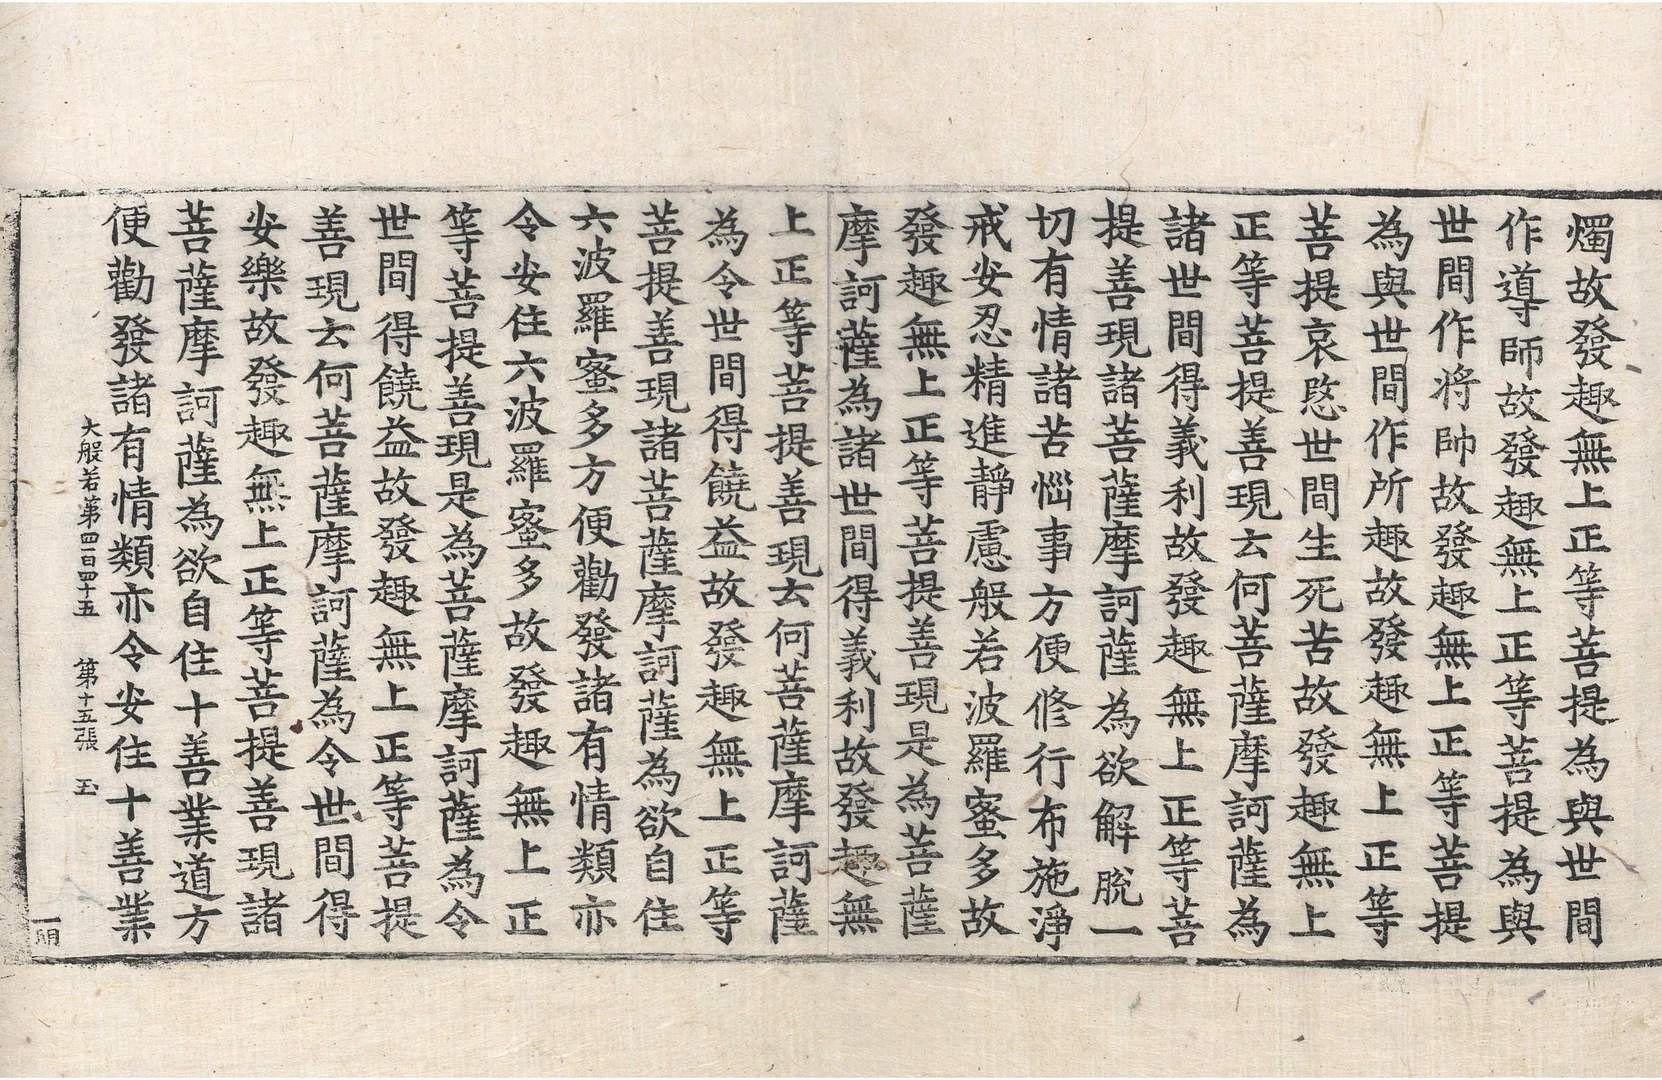 燭故發趣無上正等菩提為與世間
作導師故發趣無上正等菩提為與
世間作將帥故發趣無上正等菩提
為與世間作所趣故發趣無上正等
菩提哀愍世間生死苦故發趣無上
正等菩提善現云何菩薩摩訶薩為
諸世間得義利故發趣無上正等菩
提善現諸菩薩摩訶薩為欲解脫一
切有情諸苦惱事方便修行布施淨
戒安忍精進靜慮般若波羅蜜多故
發趣無上正等菩提善現是為菩薩
摩訶薩為諸世間得義利故發趣無
上正等菩提善現云何菩薩摩訶薩
為令世間得饒益故發趣無上正等
菩提善現諸菩薩摩訶薩為欲自住
六波羅蜜多方便勸發諸有情類亦
令安住六波羅蜜多故發趣無上正
等菩提善現是為菩薩摩訶薩為令
世間得饒益故發趣無上正等菩提
善現云何菩薩摩訶薩為令世間得
安樂故發趣無上正等菩提善現諸
菩薩摩訶薩為欲自住十善業道方
便勸發諸有情類亦令安住十善業
大般若第四百四十五 第十五張 玉
一明